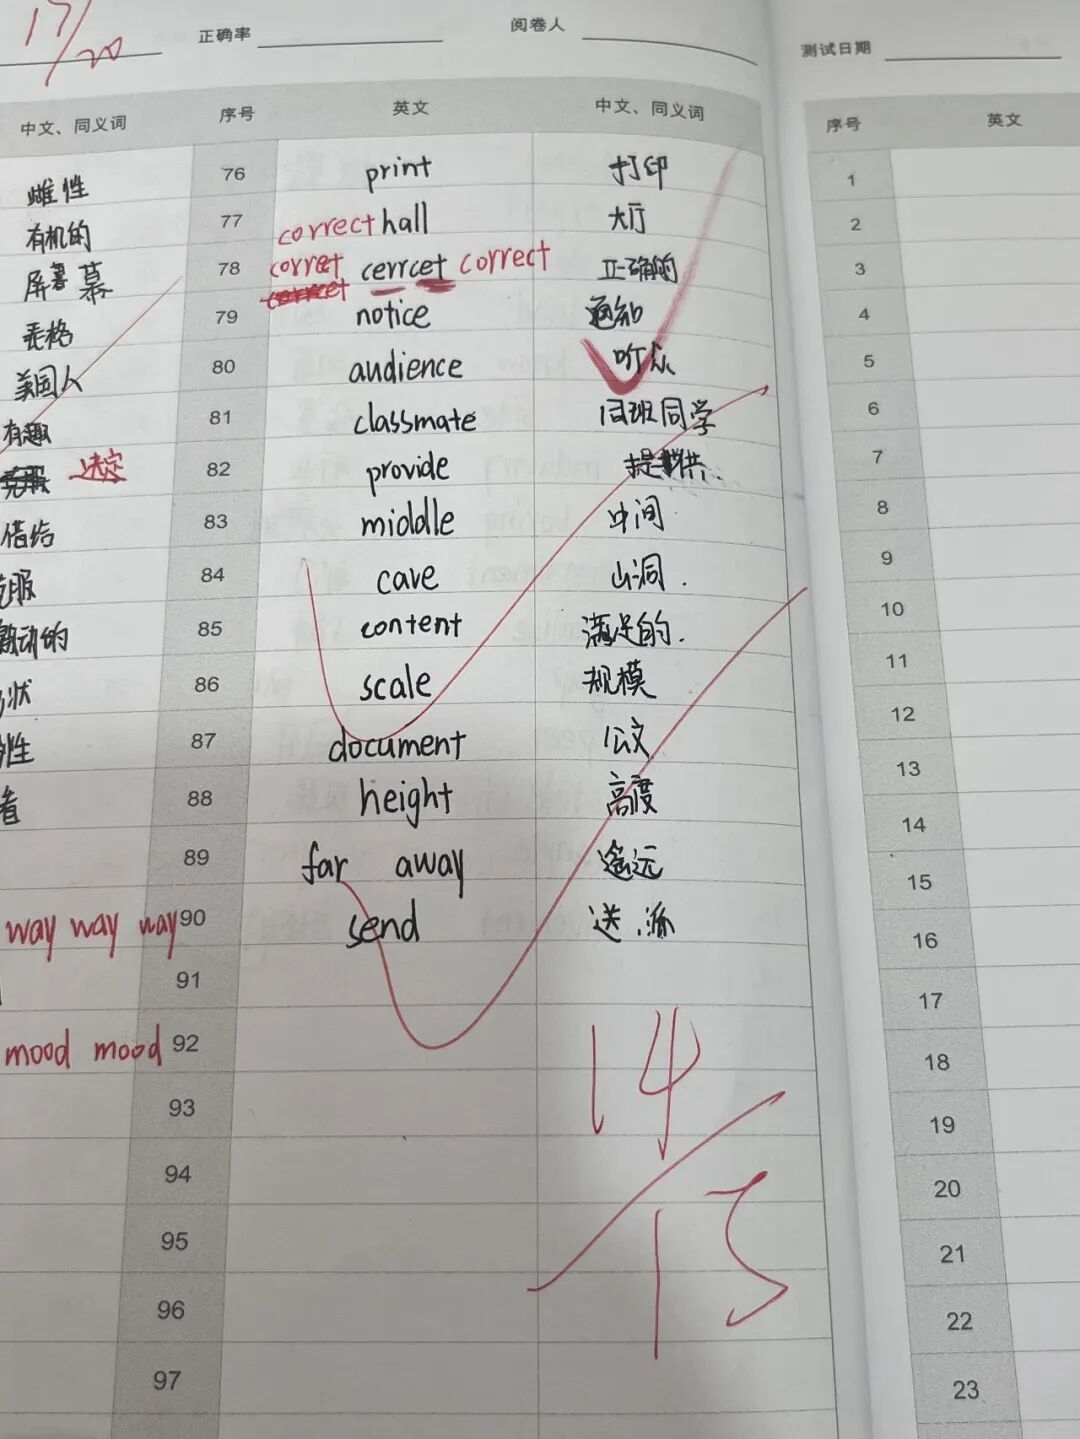 17/20 正确率 阅卷人 测试日期
中文、同义词 序号 英文 中文、同义词 序号 英文
雌性 76 print 打印 1
有机的 77 correct hall 大厅 2
屏幕 78 corret cerrcet correct 正确的 3
表格 79 notice 通知 4
美国人 80 audience 听众 5
有趣 81 classmate 同班同学 6
选定 82 provide 提供 7
借给 83 middle 中间 8
克服 84 cave 山洞. 9
激动的 85 content 满足的. 10
状 86 scale 规模 11
性 87 document 公文 12
者 88 height 高度 13
89 far away 遥远 14
way way way 90 send 送.派 15
91 16
mood mood 92 17
93 14/15 18
94 19
95 20
96 21
97 22
23